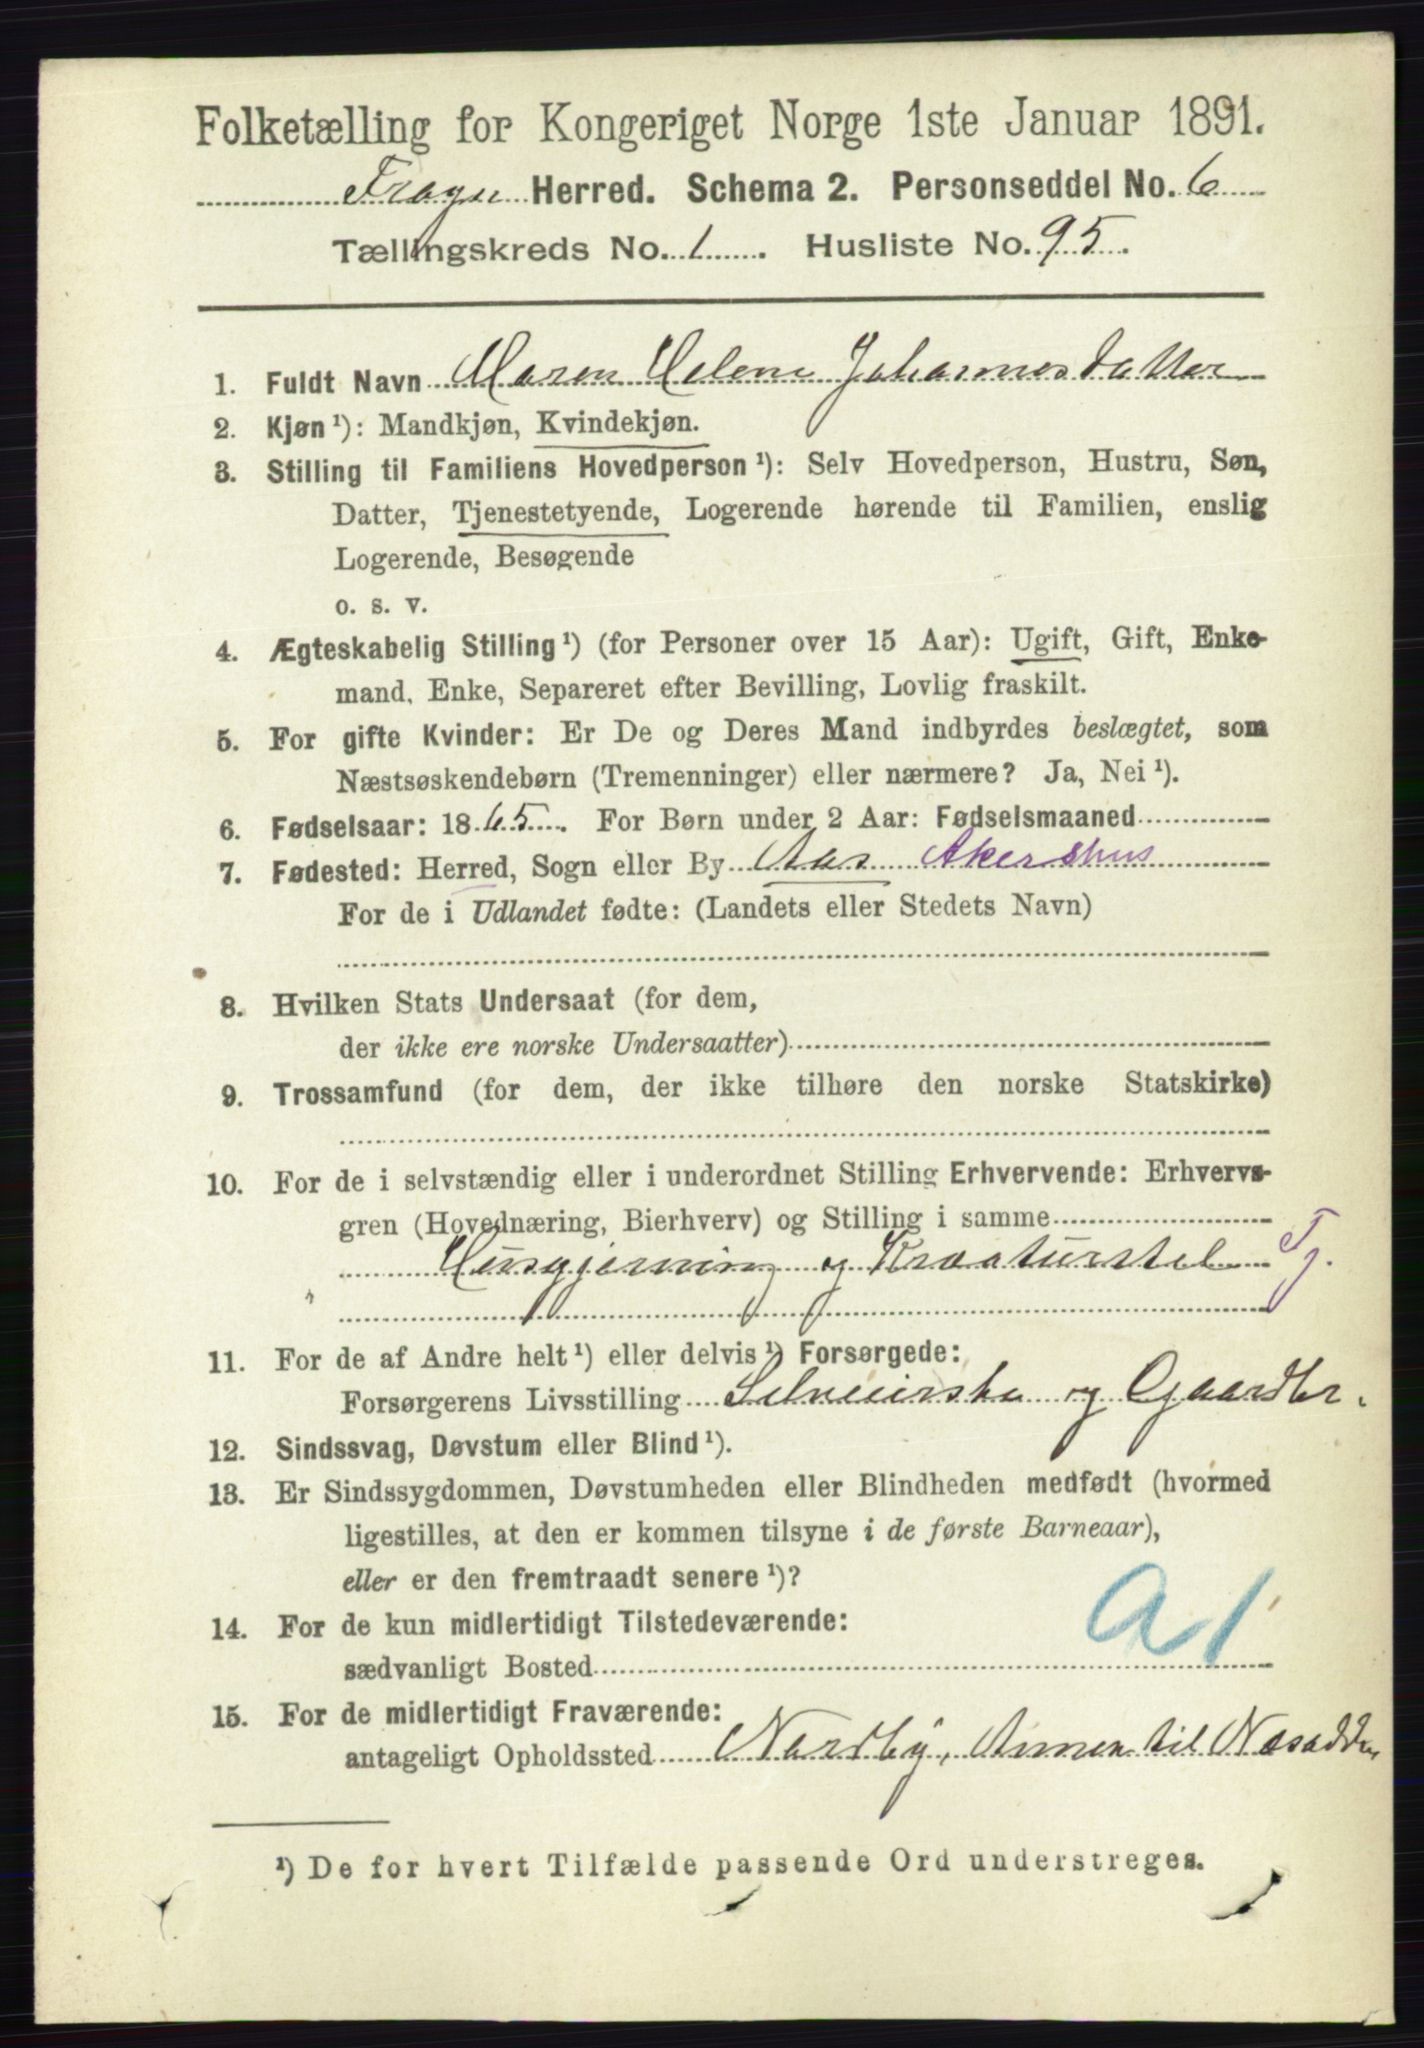 Folketælling for Kongeriget Norge 1ste Januar 1891.
Frogn Herred. Schema 2. Personseddel No. 6
Tællingskreds No. 1. Husliste No. 95.
1. Fuldt Navn Maren Helene Johannesdatter
2. Kjøn ¹): Mandkjøn, Kvindekjøn.
3. Stilling til Familiens Hovedperson ¹): Selv Hovedperson, Hustru, Søn,
Datter, Tjenestetyende, Logerende hørende til Familien, enslig
Logerende, Besøgende
o. s. v.
4. Ægteskabelig Stilling ¹) (for Personer over 15 Aar): Ugift, Gift, Enke-
mand, Enke, Separeret efter Bevilling, Lovlig fraskilt.
5. For gifte Kvinder: Er De og Deres Mand indbyrdes beslægtet, som
Næstsøskendebørn (Tremenninger) eller nærmere? Ja, Nei ¹).
6. Fødselsaar: 1865. For Børn under 2 Aar: Fødselsmaaned
7. Fødested: Herred, Sogn eller By Aas Akershus
For de i Udlandet fødte: (Landets eller Stedets Navn)
8. Hvilken Stats Undersaat (for dem,
der ikke ere norske Undersaatter)
9. Trossamfund (for dem, der ikke tilhøre den norske Statskirke)
10. For de i selvstændig eller i underordnet Stilling Erhvervende: Erhvervs-
gren (Hovednæring, Bierhverv) og Stilling i samme
Husgjerning og Kreaturstel Tj.
11. For de af Andre helt ¹) eller delvis ¹) Forsørgede:
Forsørgerens Livsstilling Selveierske og Gaardbr.
12. Sindssvag, Døvstum eller Blind ¹).
13. Er Sindssygdommen, Døvstumheden eller Blindheden medfødt (hvormed
ligestilles, at den er kommen tilsyne i de første Barneaar),
eller er den fremtraadt senere ¹)?
a 1
14. For de kun midlertidigt Tilstedeværende:
sædvanligt Bosted
15. For de midlertidigt Fraværende:
antageligt Opholdssted Nordby, Annex til Næsodden
¹) De for hvert Tilfælde passende Ord understreges.